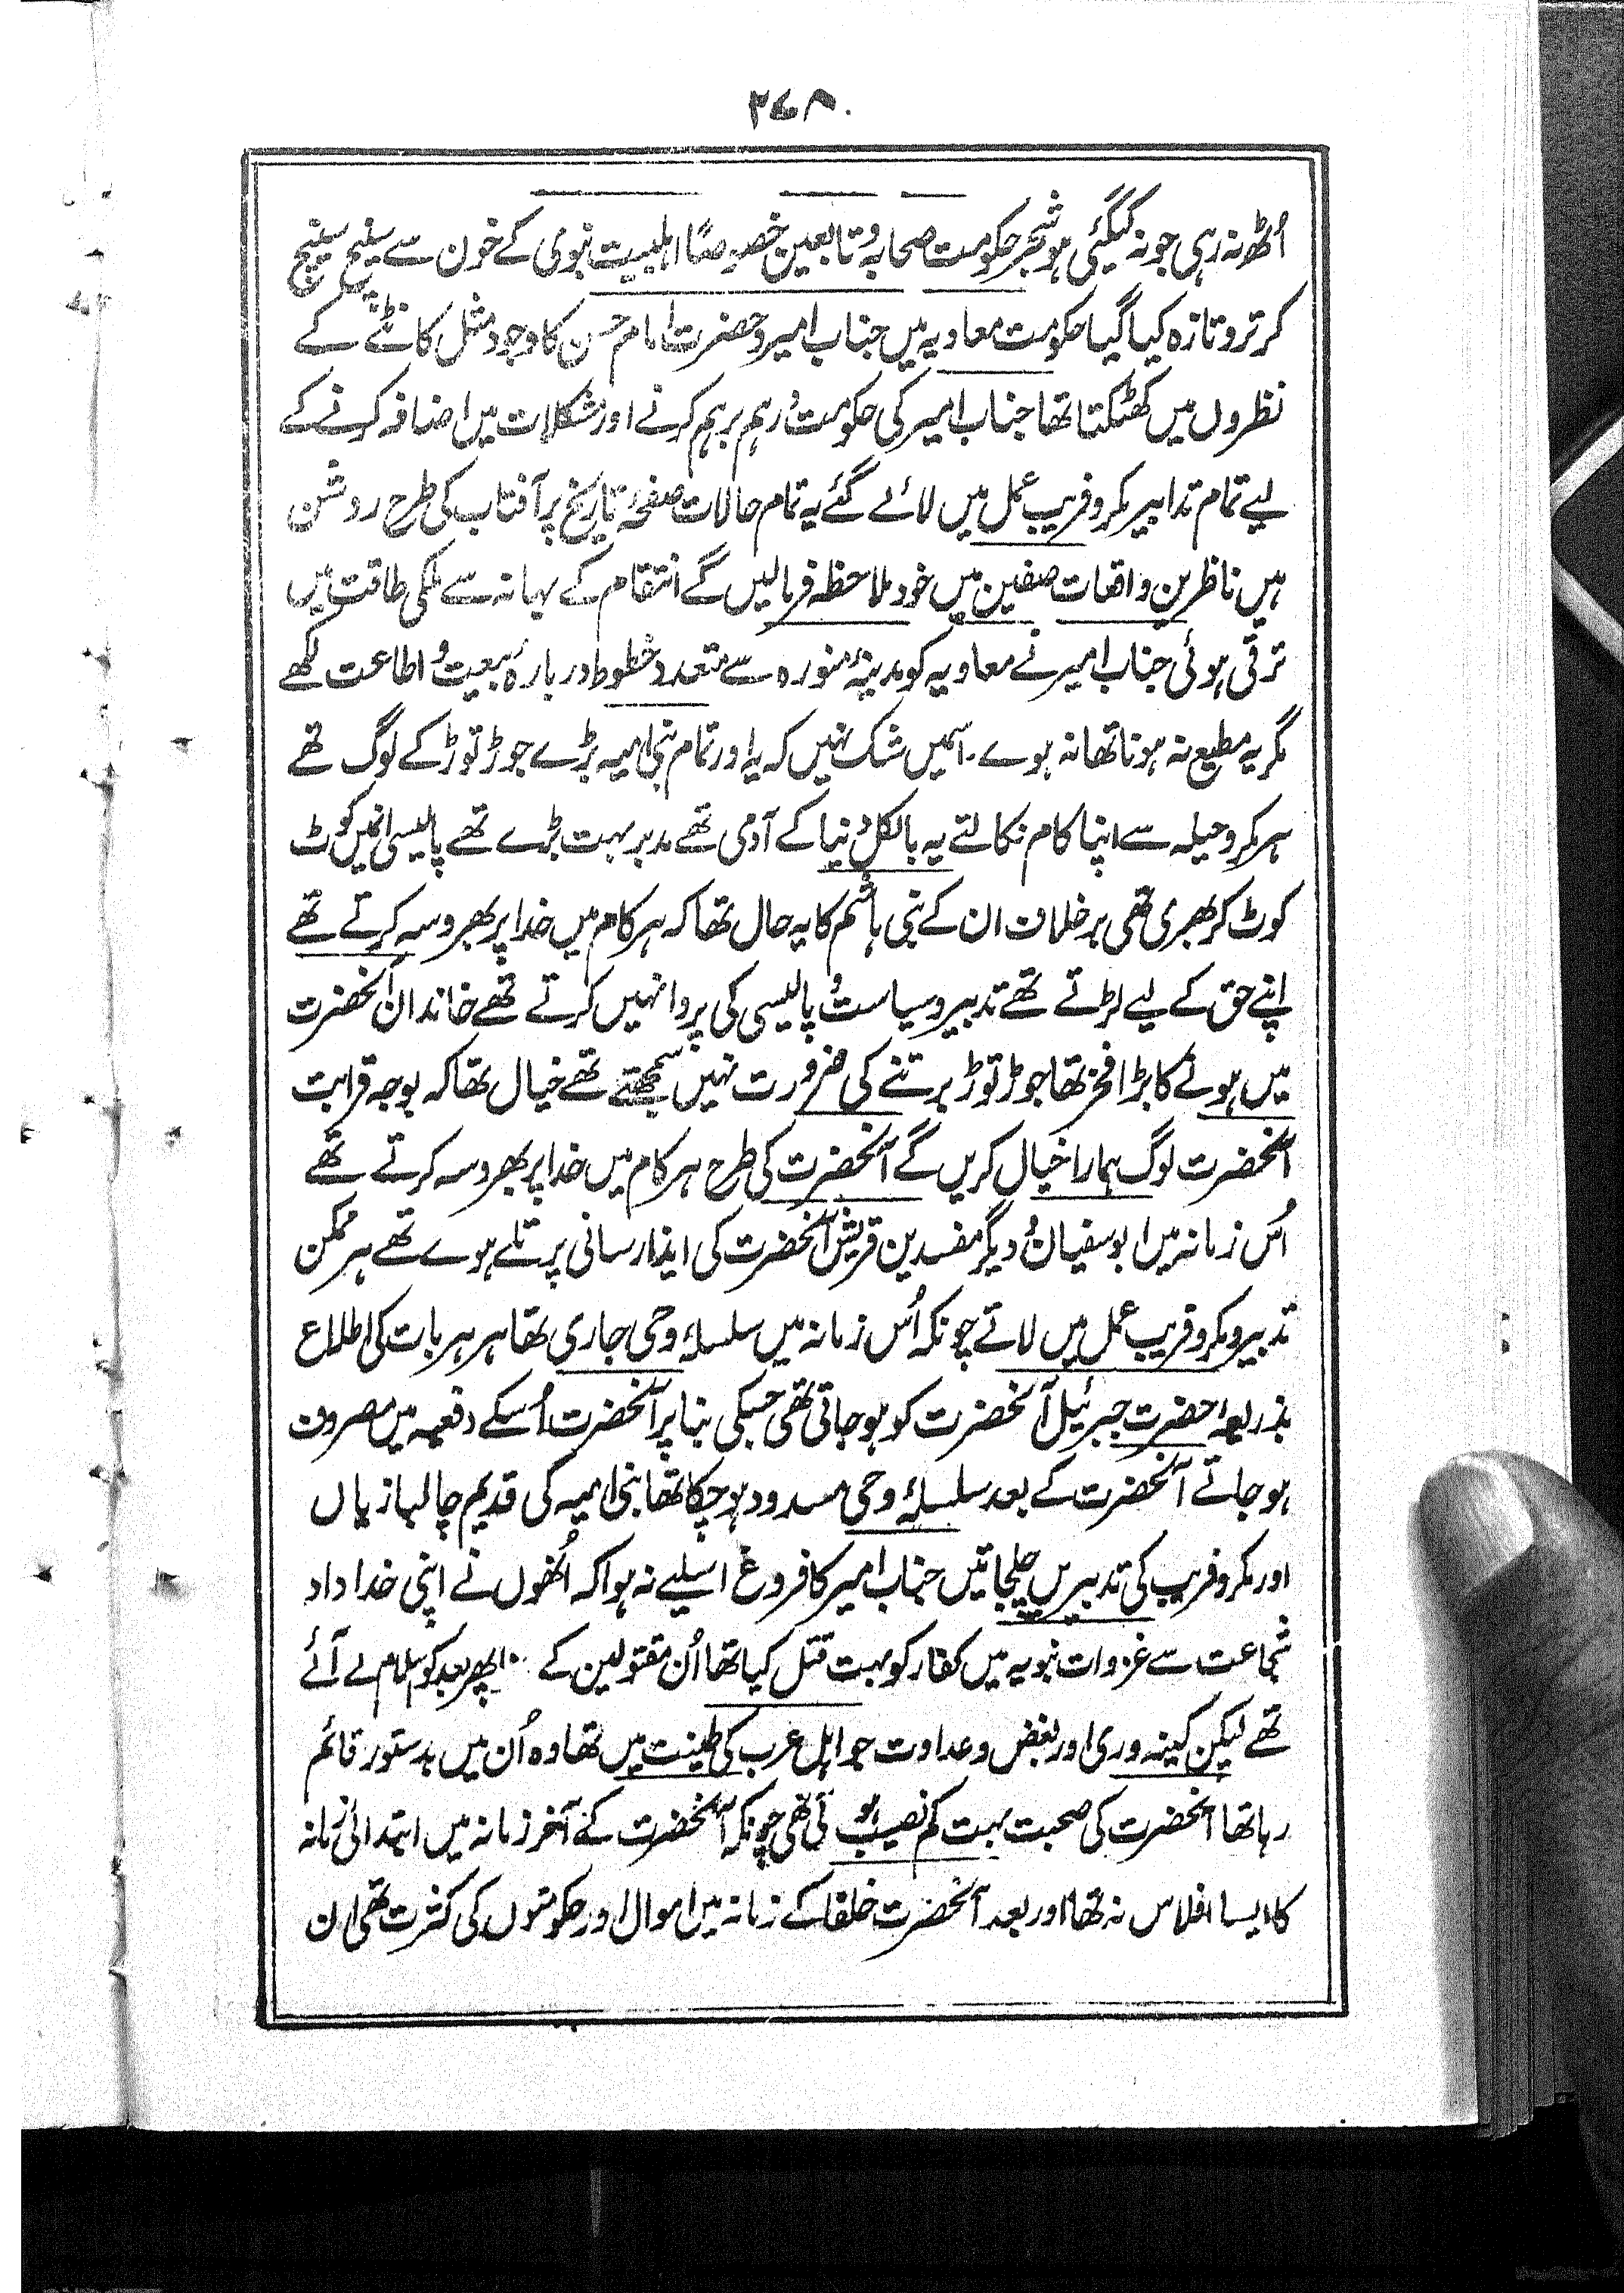 ۲۷۸
اُٹھ نہ رہی جو نہ کیگئی ہو شجر حکومت صحابہ و تابعین خصوصًا اہلبیت نبوی کے خون سے سینچ سینچ
کر تر و تازہ کیا گیا حکومت معاویہ میں جناب امیر و حضرت امام حسن کا وجود مثل کانٹے کے
نظروں میں کھٹکتا تھا جناب امیر کی حکومت درہم برہم کرنے اور مشکلات میں اضافہ کرنے کے
لیے تمام تدابیر مکر و فریب عمل میں لائے گئے یہ تمام حالات صفحۂ تاریخ پر آفتاب کی طرح روشن
ہیں ناظرین واقعات صفین میں خود ملاحظہ فرمالیں گے انتقام کے بہانہ سے ملکی طاقت میں
ترقی ہوئی جناب امیر نے معاویہ کو مدینۂ منورہ سے متعدد خطوط دربارۂ بیعت و اطاعت لکھے
مگر یہ مطیع نہ ہونا تھا نہ ہوے ۔ اسمیں شک نہیں کہ یہ اور تمام بنی امیہ بڑے جوڑ توڑ کے لوگ تھے
ہر مکر و حیلہ سے اپنا کام نکالتے یہ بالکل دنیا کے آدمی تھے مدبر بہت بڑے تھے پالیسی انمیں کوٹ
کوٹ کر بھری تھی برخلاف ان کے بنی ہاشم کا یہ حال تھا کہ ہر کام میں خدا پر بھروسہ کرتے تھے
اپنے حق کے لیے لڑتے تھے تدبیر و سیاست و پالیسی کی پروا نہیں کرتے تھے خاندان آنحضرت
میں ہونے کا بڑا فخر تھا جوڑ توڑ برتنے کی ضرورت نہیں سمجھتے تھے خیال تھا کہ بوجہ قرابت
آنحضرت لوگ ہمارا خیال کریں گے آنحضرت کی طرح ہر کام میں خدا پر بھروسہ کرتے تھے
اُس زمانہ میں ابوسفیان و دیگر مفسدین قریش آنحضرت کی ایذارسانی پر تلے ہوے تھے ہر ممکن
تدبیر و مکر و فریب عمل میں لاتے چونکہ اُس زمانہ میں سلسلۂ وحی جاری تھا ہر ہر بات کی اطلاع
بذریعۂ حضرت جبرئیل آنحضرت کو ہو جاتی تھی جسکی بنا پر آنحضرت اُسکے دفعیہ میں مصروف
ہو جاتے آنحضرت کے بعد سلسلۂ وحی مسدود ہو چکا تھا بنی امیہ کی قدیم چالبازیاں
اور مکر و فریب کی تدبیریں چلجاتیں جناب امیر کا فروغ اسلیے نہ ہوا کہ اُنھوں نے اپنی خداداد
شجاعت سے غزوات نبویہ میں کفار کو بہت قتل کیا تھا اُن مقتولین کے بعد کو اسلام لے آئے
تھے لیکن کینہ وری اور بغض و عداوت جو اہل عرب کی طینت میں تھا وہ اُن میں بدستور قائم
رہا تھا آنحضرت کی صحبت بہت کم نصیب ہوئی تھی چونکہ آنحضرت کے آخر زمانہ میں ابتدائی زمانہ
کا ایسا افلاس نہ تھا اور بعد آنحضرت خلفا کے زمانہ میں اموال اور حکومتوں کی کثرت تھی ان